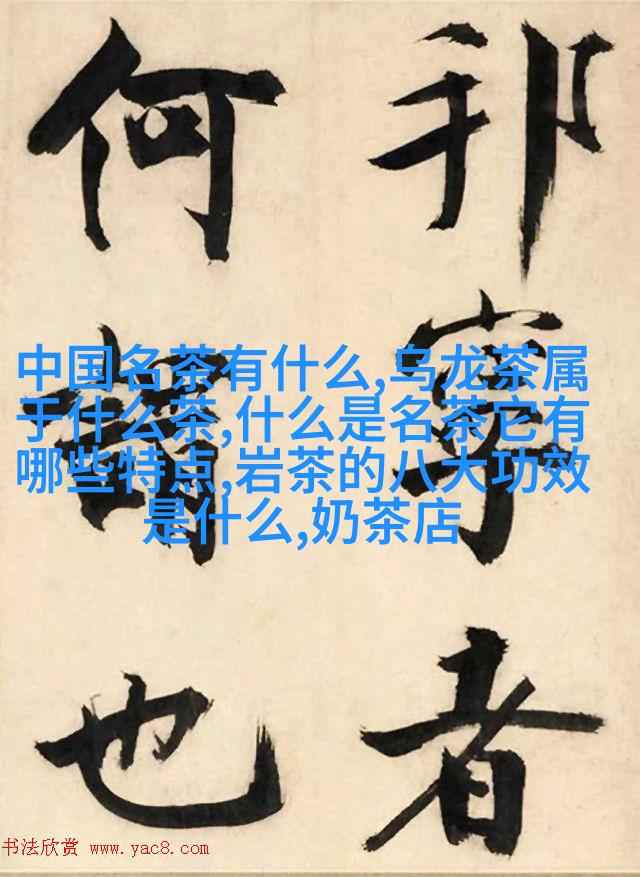 邦寧者
何也
中国名茶有什么,乌龙茶属
于什么茶,什么是名茶它有
哪些特点,岩茶的八大功效
是什么,奶茶店
书法欣赏 www.yac8.com